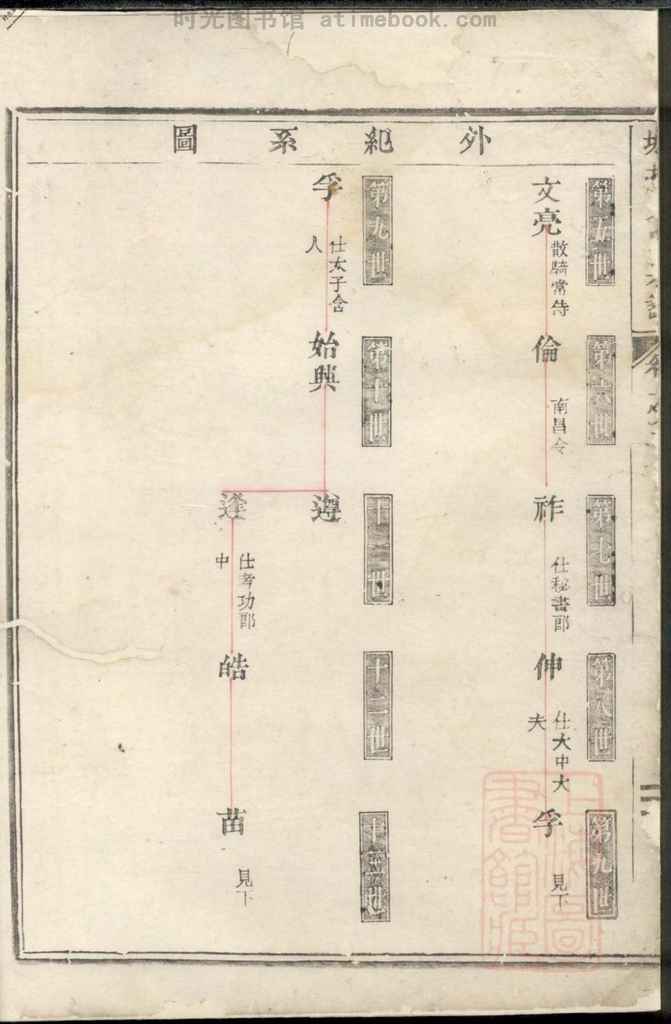 时光图书馆 atimebook.com
外紀系圖
第五世
文亮 散騎常侍
第六世
倫 南昌令
第七世
祚 仕秘書郎
第八世
伸 仕大中大夫
第九世
孚 見下
第九世
孚 仕太子舍人
第十世
始興
十一世
遵
逢 仕考功郎中
十二世
皓
十三世
苗 見下